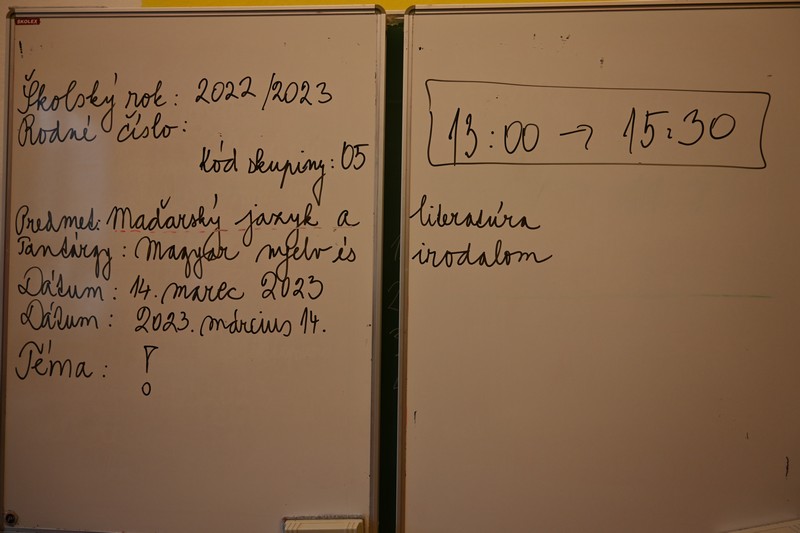 ŠKOLEX
Školský rok: 2022/2023
Rodné číslo:
Kód skupiny: 05
Predmet: Maďarský jazyk a literatúra
Tantárgy: Magyar nyelv és irodalom
Dátum: 14. marec 2023
Dátum: 2023. március 14.
Téma: !
13:00 → 15:30